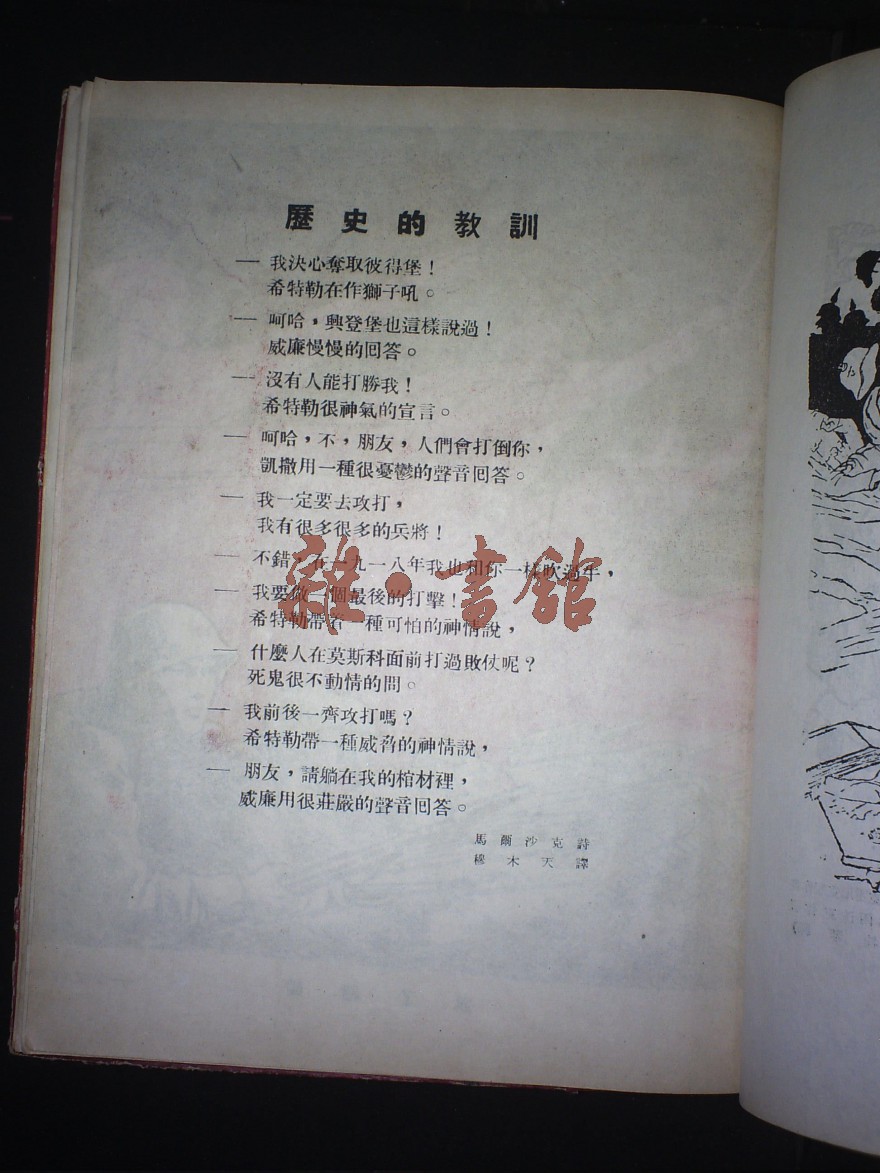 歷史的教訓
— 我決心奪取彼得堡！
希特勒在作獅子吼。
— 呵哈，興登堡也這樣說過！
威廉慢慢的回答。
— 沒有人能打勝我！
希特勒很神氣的宣言。
— 呵哈，不，朋友，人們會打倒你，
凱撒用一種很憂鬱的聲音回答。
— 我一定要去攻打，
我有很多很多的兵將！
— 不錯，在一九一八年我也和你一樣吹過牛，
— 我要做一個最後的打擊！
希特勒帶着一種可怕的神情說，
— 什麼人在莫斯科面前打過敗仗呢？
死鬼很不動情的問。
— 我前後一齊攻打嗎？
希特勒帶一種威脅的神情說，
— 朋友，請躺在我的棺材裡，
威廉用很莊嚴的聲音回答。
馬爾沙克詩
穆木天譯
雜·書館